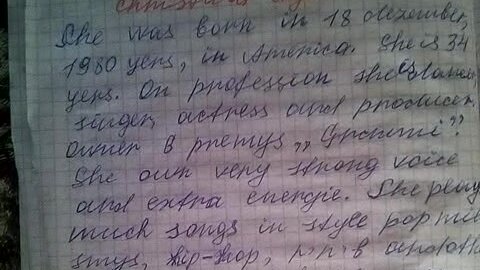 She was born in 18 dezember,
1980 yers, in America. She is 34
yers. On profession she is dancer
singer, actress and producer,
owner 6 premys „Grammi”.
She own very strong voice
and extra energie. She play
much songs in style pop mu
smys, hip-hop, r'n'b and oth